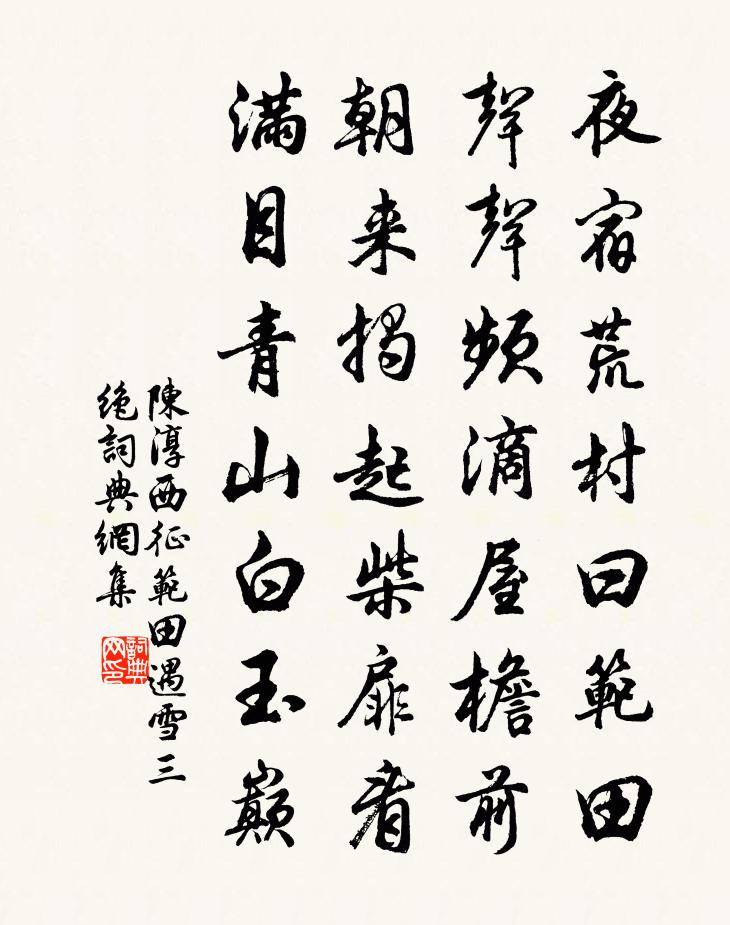 夜宿荒村曰範田
聲聲頻滴屋檐前
朝来揭起柴扉看
滿目青山白玉巔
陳淳西征範田遇雪三
絶詞典網集
詞典
网印